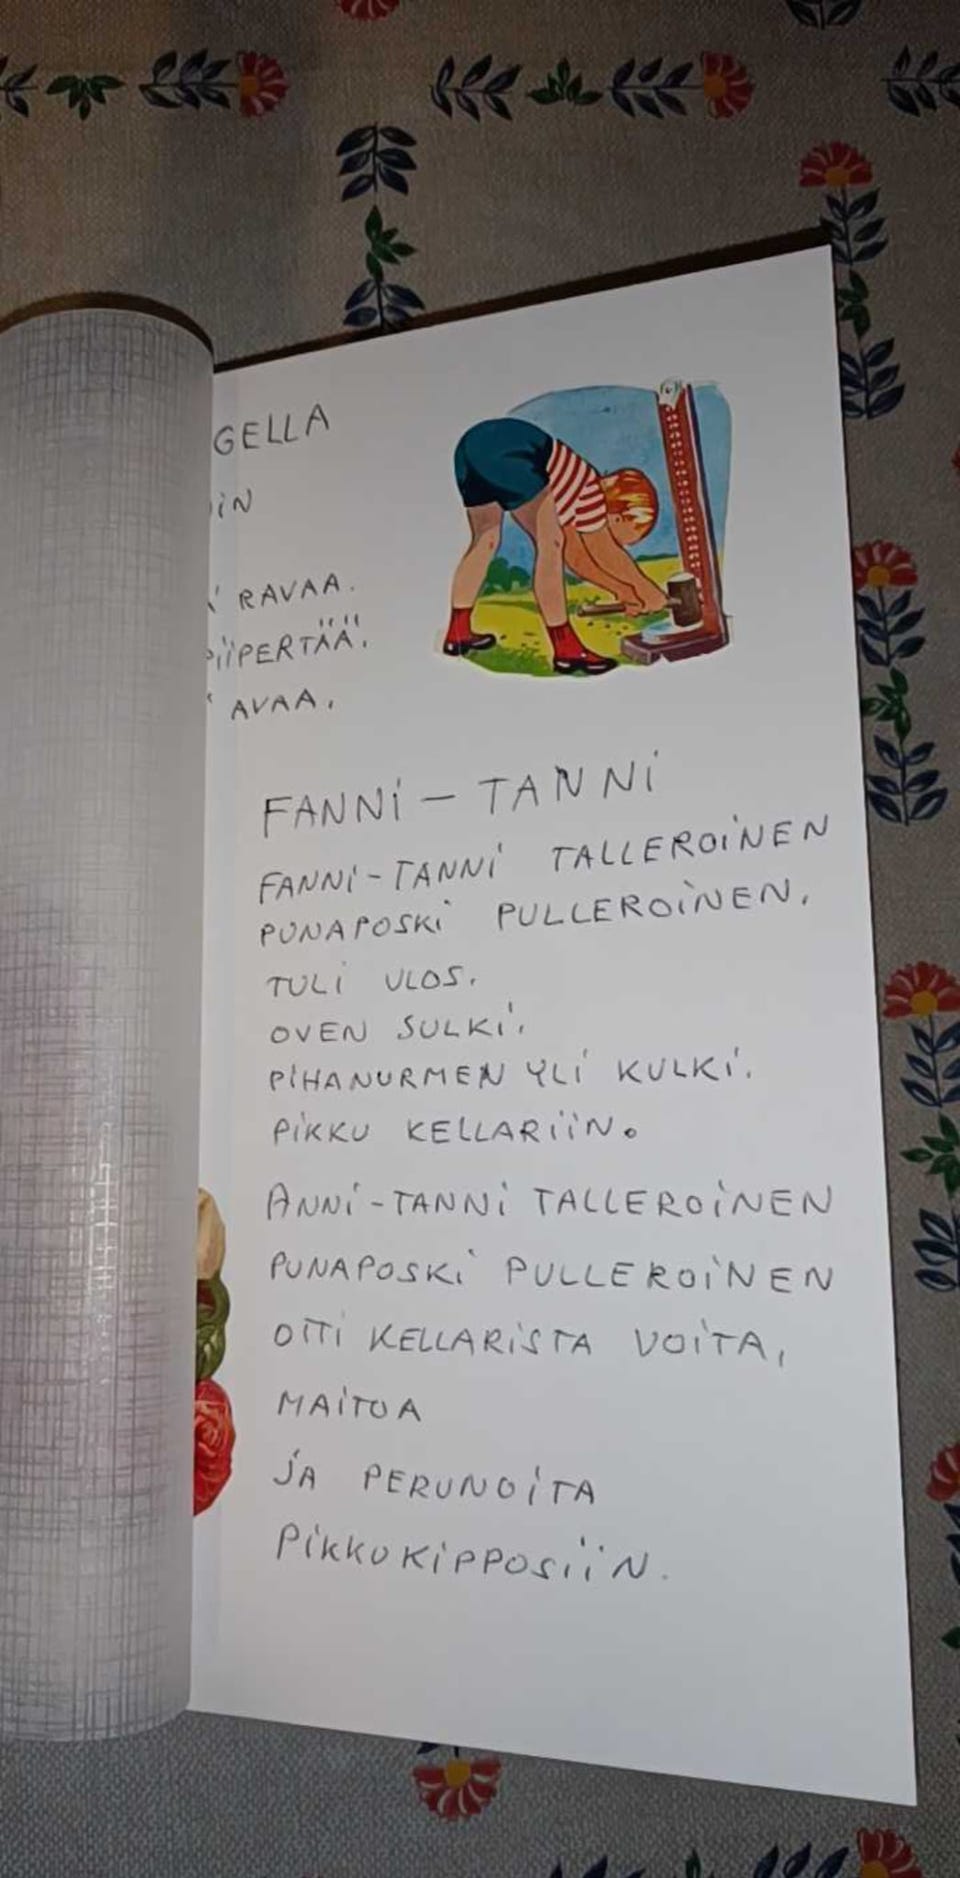 GELLA
RAVAA.
PIIPERTÄÄ.
AVAA.
FANNI - TANNI
FANNI-TANNI TALLEROINEN
PUNAPOSKI PULLEROINEN.
TULI ULOS.
OVEN SULKI.
PIHANURMEN YLI KULKI.
PIKKU KELLARIIN.
ANNI-TANNI TALLEROINEN
PUNAPOSKI PULLEROINEN
OTTI KELLARISTA VOITA,
MAITOA
JA PERUNOITA
PIKKUKIPPOSIIN.